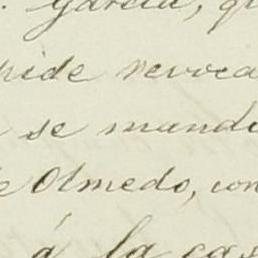 . Garcia, q
pide revoca
se mand
e Olmedo, con
á la cas